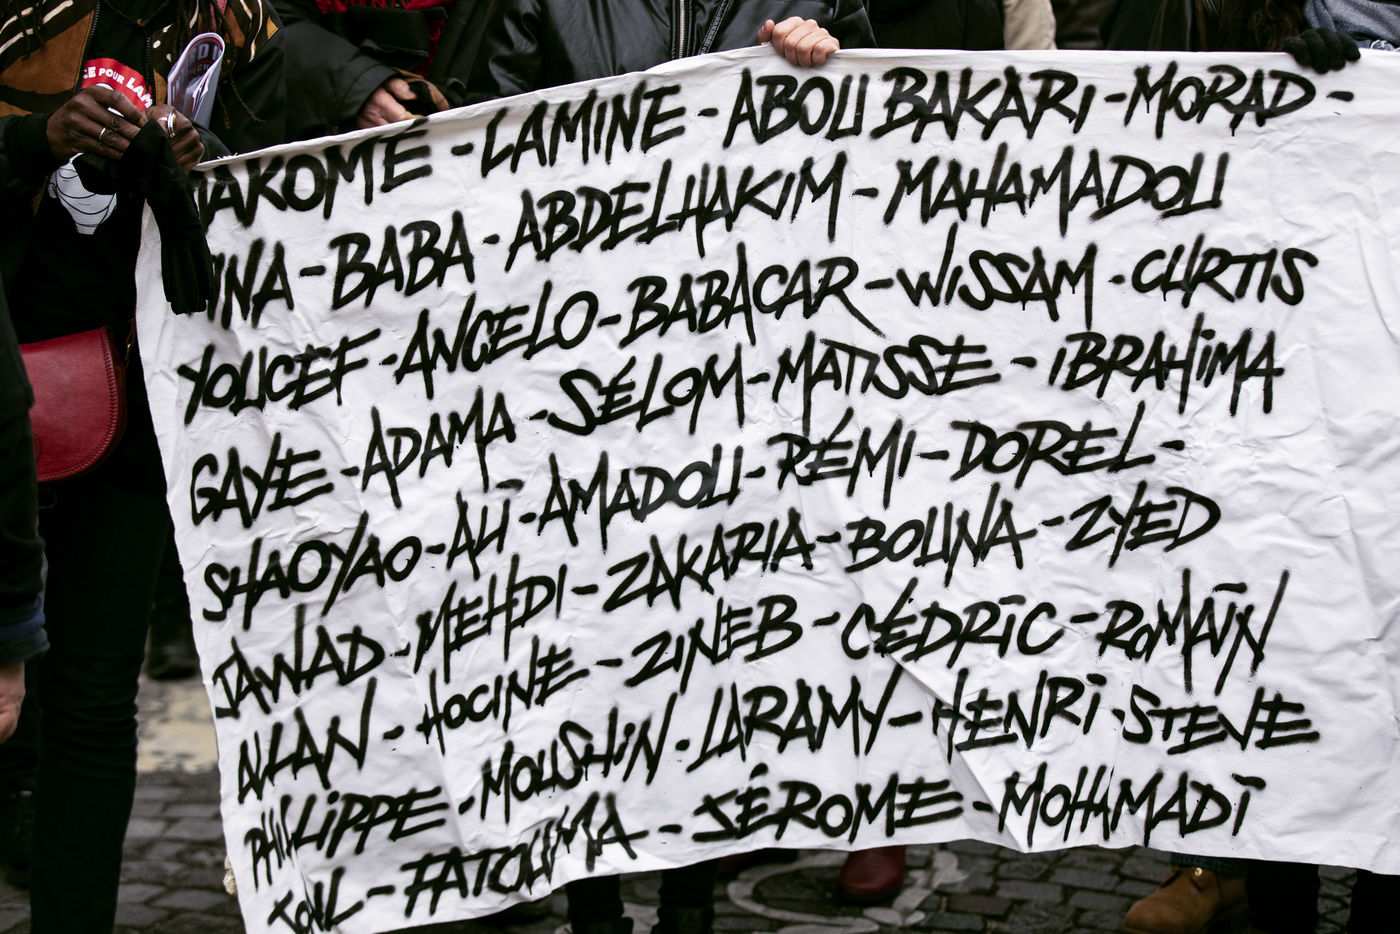 CE POUR LAM
MAKOMÉ - LAMINE - ABOU BAKARI - MORAD -
INA - BABA - ABDELHAKIM - MAHAMADOU
YOUCEF - ANGELO - BABACAR - WISSAM - CURTIS
GAYE - ADAMA - SÉLOM - MATISSE - IBRAHIMA
SHAOYAO - ALI - AMADOU - RÉMI - DOREL -
JAWAD - MEHDI - ZAKARIA - BOUNA - ZYED
ALLAN - HOCINE - ZINEB - CÉDRIC - ROMAIN
PHILIPPE - MOUSHIN - LARAMY - HENRI - STEVE
JOËL - FATOUMA - JÉROME - MOHAMADI